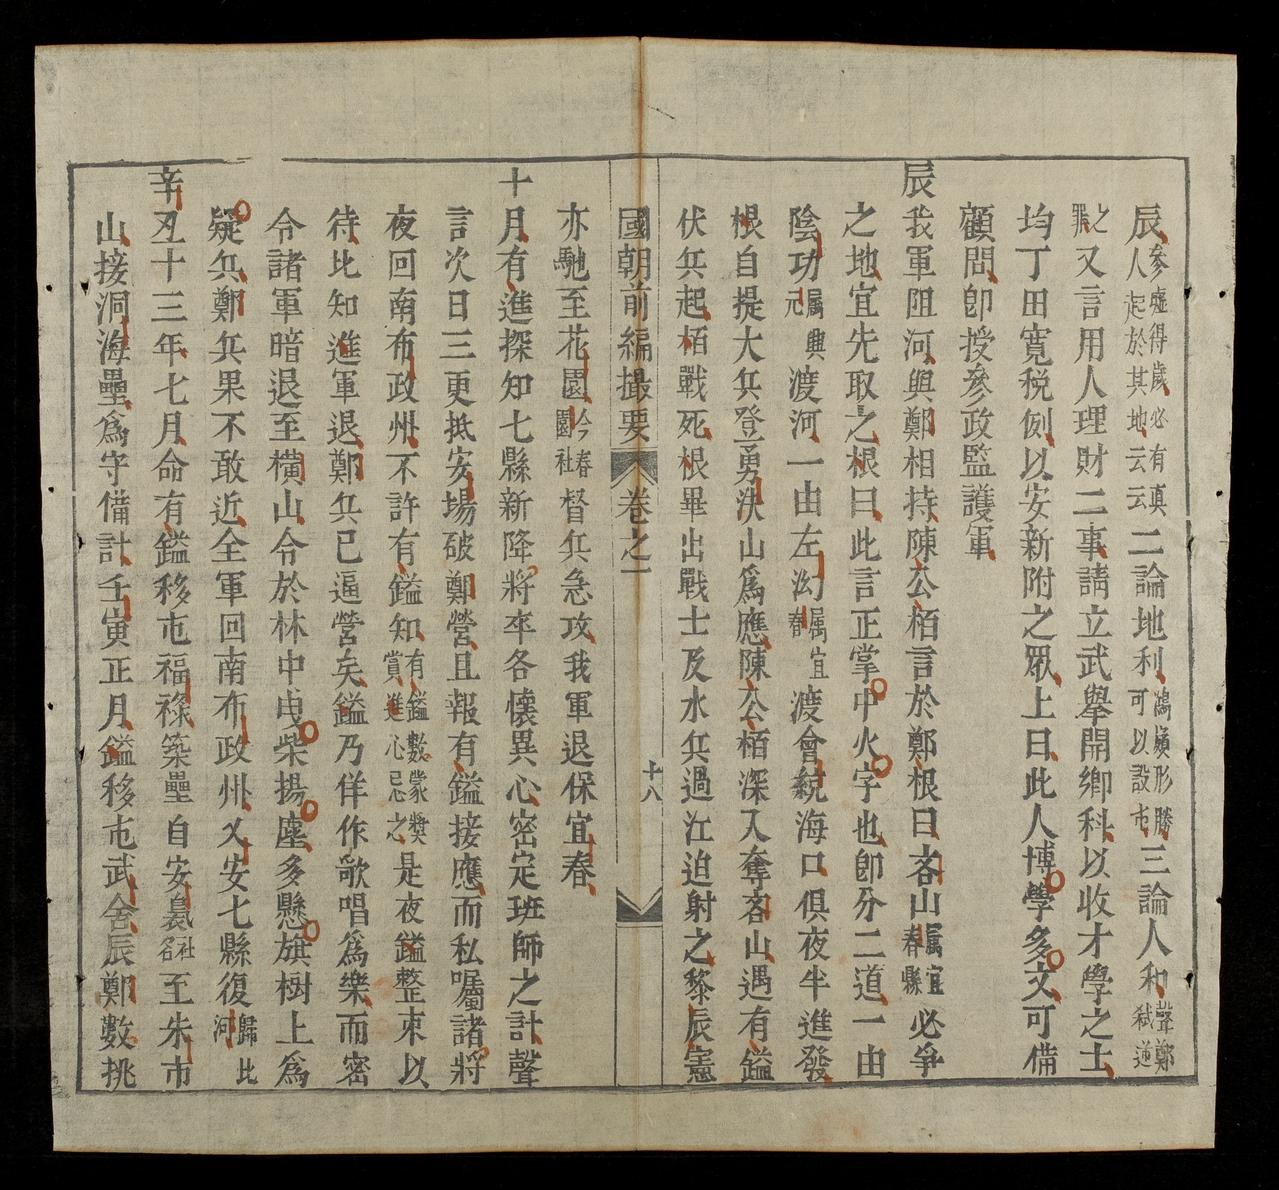 辰參人虛起得於歲其必地有云眞云二論地利鴻嶺形勝可以設屯三論人和聲鄭弑逆
之罪又言用人理財二事請立武擧開鄉科以收才學之士
均丁田寬税例以安新附之眾上曰此人博學多文可備
顧問卽授參政監護軍
辰我軍阻河與鄭相持陳公栢言於鄭根曰峇山属宜春縣必爭
之地宜先取之根曰此言正掌中火字也卽分二道一由
陰功属興元渡河一由左㳓属宜春渡會統海口俱夜半進發
根自提大兵登勇決山爲應陳公栢深入奪峇山遇有鎰
伏兵起栢戰死根畢出戰士及水兵過江迫射之黎辰憲
國朝前編撮要 卷之一 十八
亦馳至花園今春園社督兵急攻我軍退保宜春
十月有進探知七縣新降將卒各懷異心密定班師之計聲
言次日三更抵安場破鄭營且報有鎰接應而私囑諸將
夜回南布政州不許有鎰知有鎰數蒙獎賞進心忌之是夜鎰整束以
待比知進軍退鄭兵已逼營矣鎰乃佯作歌唱爲樂而密
令諸軍暗退至橫山令於林中曳柴揚塵多懸旗樹上爲
疑兵鄭兵果不敢近全軍回南布政州乂安七縣復歸比河
辛丑十三年七月命有鎰移屯福祿築壘自安裊社名至朱市
山接洞海壘爲守備計壬寅正月鎰移屯武舍辰鄭數挑